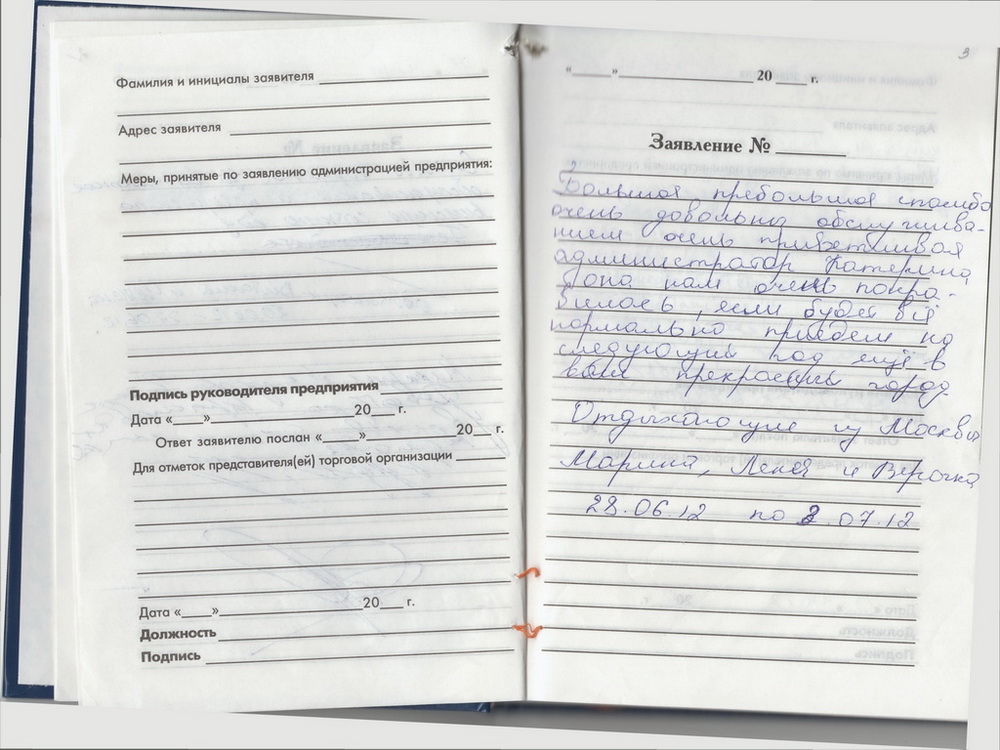 Фамилия и инициалы заявителя
Адрес заявителя
Меры, принятые по заявлению администрацией предприятия:
Подпись руководителя предприятия
Дата «____»____20___ г.
Ответ заявителю послан «____»____20___ г.
Для отметок представителя(ей) торговой организации
Дата «____»____20___ г.
Должность
Подпись
3
«____»____20____ г.
Заявление №
Большое пребольшое спасибо
очень довольна обслужива-
нием очень приветливая
администратор Катерина,
она нам очень понра-
вилась, если будет всё
нормально приедем на
следующий год ещё в
ваш прекрасный город
Отдыхающие из Москвы
Марина, Лена и Верочка
28.06.12 по 2.07.12